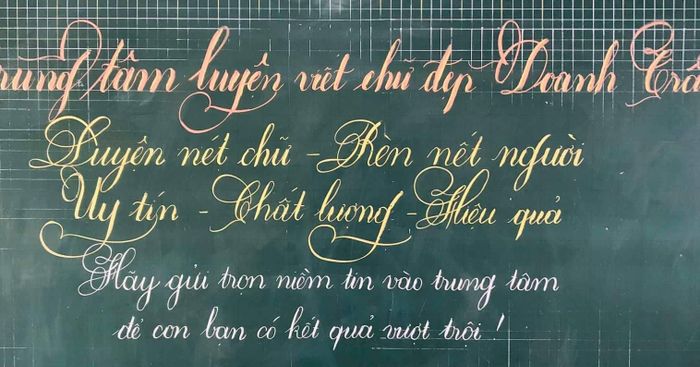 rung tâm luyện viết chữ đẹp Doanh Trá
Luyện nét chữ - Rèn nết người
Uy tín - Chất lượng - Hiệu quả
Hãy gửi trọn niềm tin vào trung tâm
để con bạn có kết quả vượt trội !